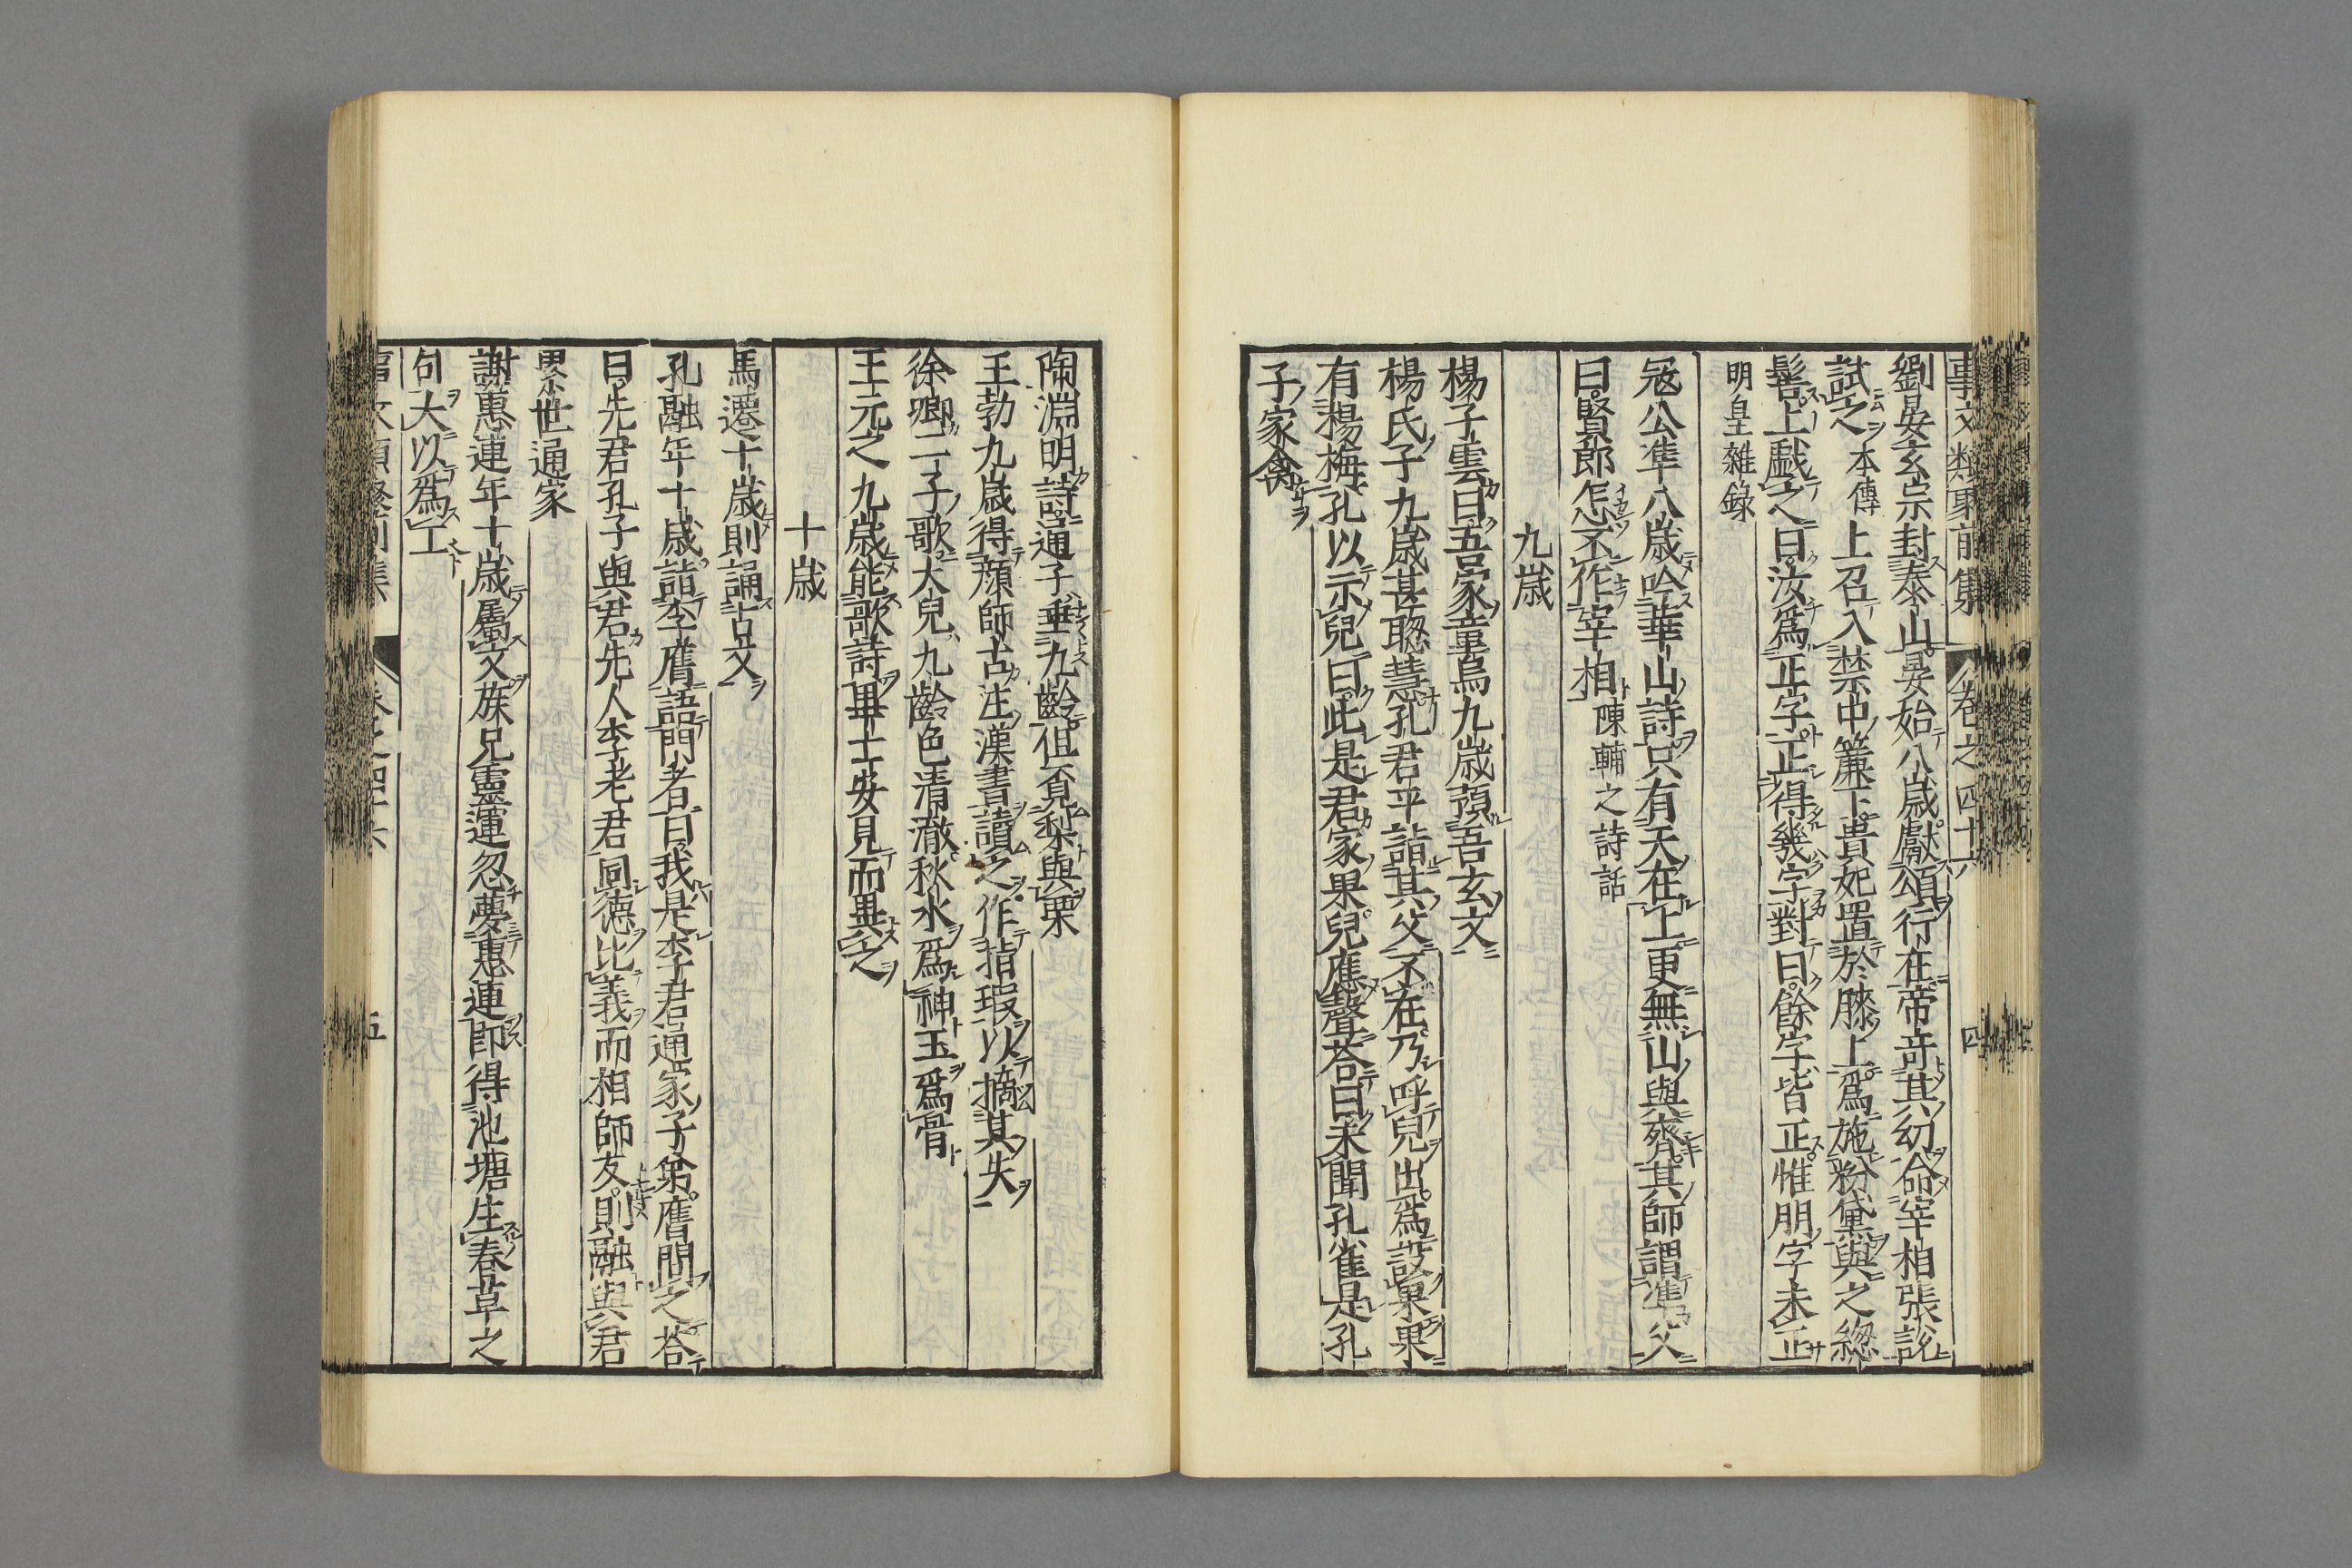 事文類聚前集 卷之四十六 四
劉晏玄宗封泰山晏始八歲獻頌行在帝竒其幼命宰相張說
試之本傳上召入禁中簾下貴妃置於膝上爲施粉黛與之緫
髻上戱之曰汝爲正字正得幾字對曰餘字皆正惟朋字未正
明皇雜録
冦公凖八歲吟華山詩只有天在上更無山與齊其師謂凖父
曰賢郎怎不作宰相陳輔之詩話
九歲
楊子雲曰吾家童烏九歲預吾玄文
楊氏子九歲甚聦慧孔君平詣其父不在乃呼兒出爲設果果
有楊梅孔以示兒曰此是君家果兒應聲荅曰未聞孔雀是孔
子家禽
陶淵明詩通子垂九齡但覔梨與栗
王勃九歲得顔師古注漢書讀之作指瑕以擿其失
徐卿二子歌大兒九齡色清澈秋水爲神玉爲骨
王元之九歲能歌詩畢士安見而異之
十歲
馬遷十歲則誦古文
孔融年十歲詣李膺語門者曰我是李君通家子弟膺問之荅
曰先君孔子與君先人李老君同德比義而相師友則融與君
累世通家
謝惠連年十歲屬文族兄靈運忽夢惠連即得池塘生春草之
句大以爲工
五